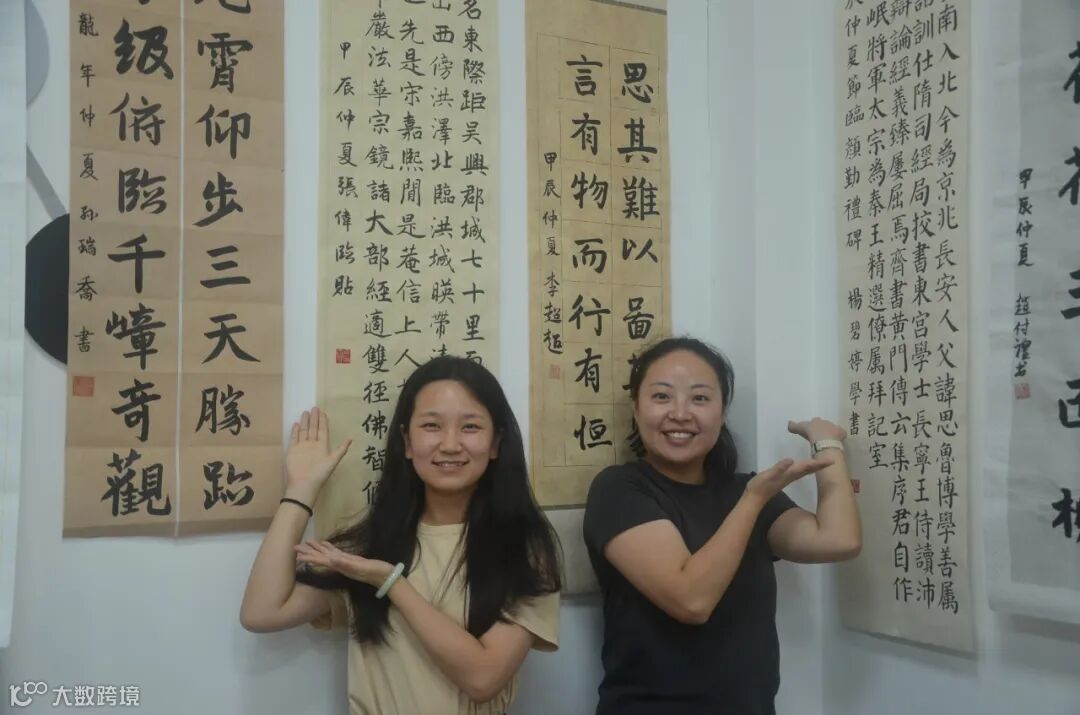 霄仰步三天勝跡
級俯臨千嶂奇觀
龍年仲夏 孫瑞喬書
名東際距吴興郡城七十里而
山西傍洪澤北臨洪城暎帶
也先是宋嘉熙間是菴信上人
嚴法華宗鏡諸大部經適雙徑佛智偃
甲辰仲夏張偉臨貼
思其難以啚其
言有物而行有恒
甲辰仲夏 李超越
南入北今為京兆長安人父諱思魯博學善属
詁訓仕隋司經局挍書東宮學士長寧王侍讀沛
辯論經義臻屢屈焉齊書黄門傳云集序君自作
岷將軍太宗為秦王精選僚属拜記室
辰仲夏節臨顔勤禮碑 楊碧婷學書
甲辰仲夏 趙付禮書
大数跨境